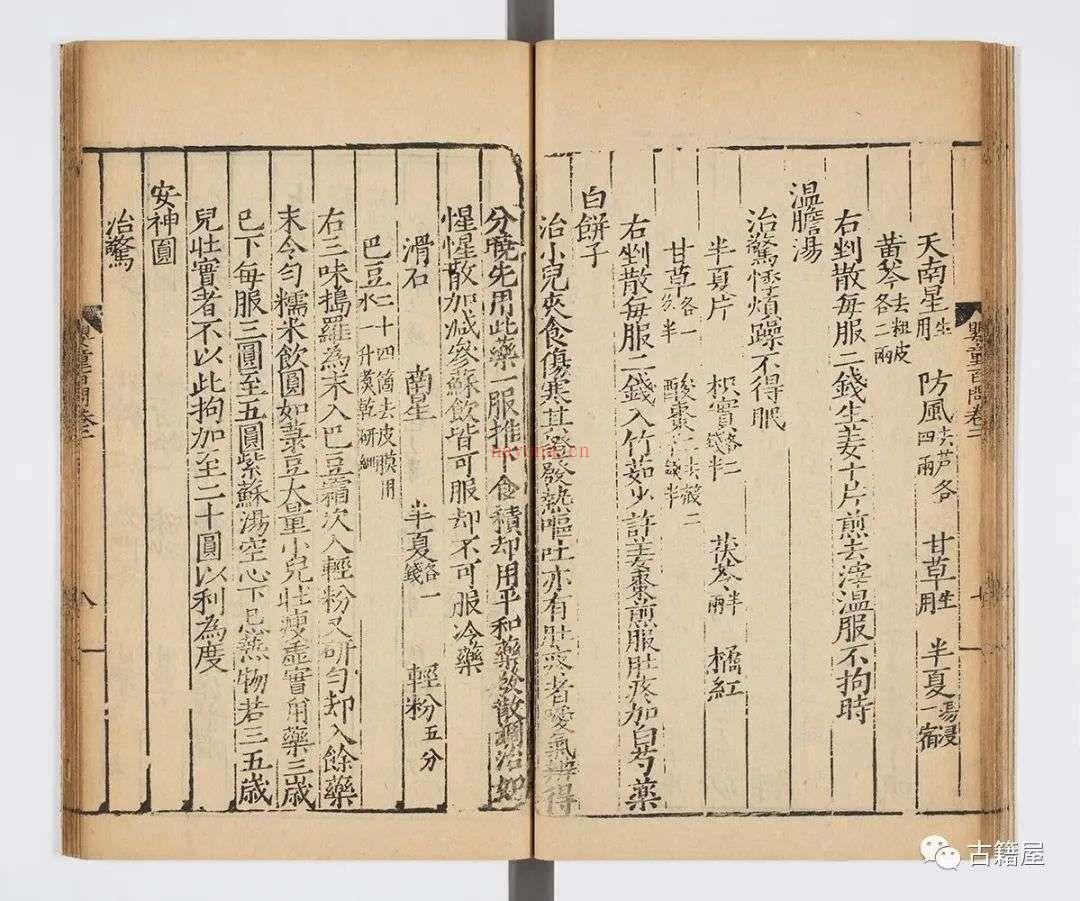 天南星生用 防風去芦各四兩 甘草生用 半夏湯浸一宿
黃芩去粗皮各二兩
右剉散每服二錢生姜十片煎去滓溫服不拘時
溫膽湯
治驚悸煩躁不得眠
半夏片 枳實各二錢半 茯苓半兩 橘紅
甘草各一錢半 酸棗
右剉散每服二錢入竹茹少許姜棗煎服肚疼加白芍藥
白餅子
治小兒夾食傷寒其證發熱嘔吐亦有肚疼者噯氣辨得
分曉先用此藥一服推下食積却用平和藥發散調治如
惺惺散加減參蘇飲皆可服却不可服冷藥
滑石 南星 半夏各一錢 輕粉五分
巴豆二十四箇去皮膜用水一升煑乾研細
右三味搗羅為末入巴豆霜次入輕粉又研勻却入餘藥
末令勻糯米飲圓如菉豆大量小兒壯瘦虛實用藥三歲
已下每服三圓至五圓紫蘇湯空心下忌熱物若三五歲
兒壯實者不以此拘加至二十圓以利為度
安神圓
治驚
嬰童百問卷二
八
古籍屋